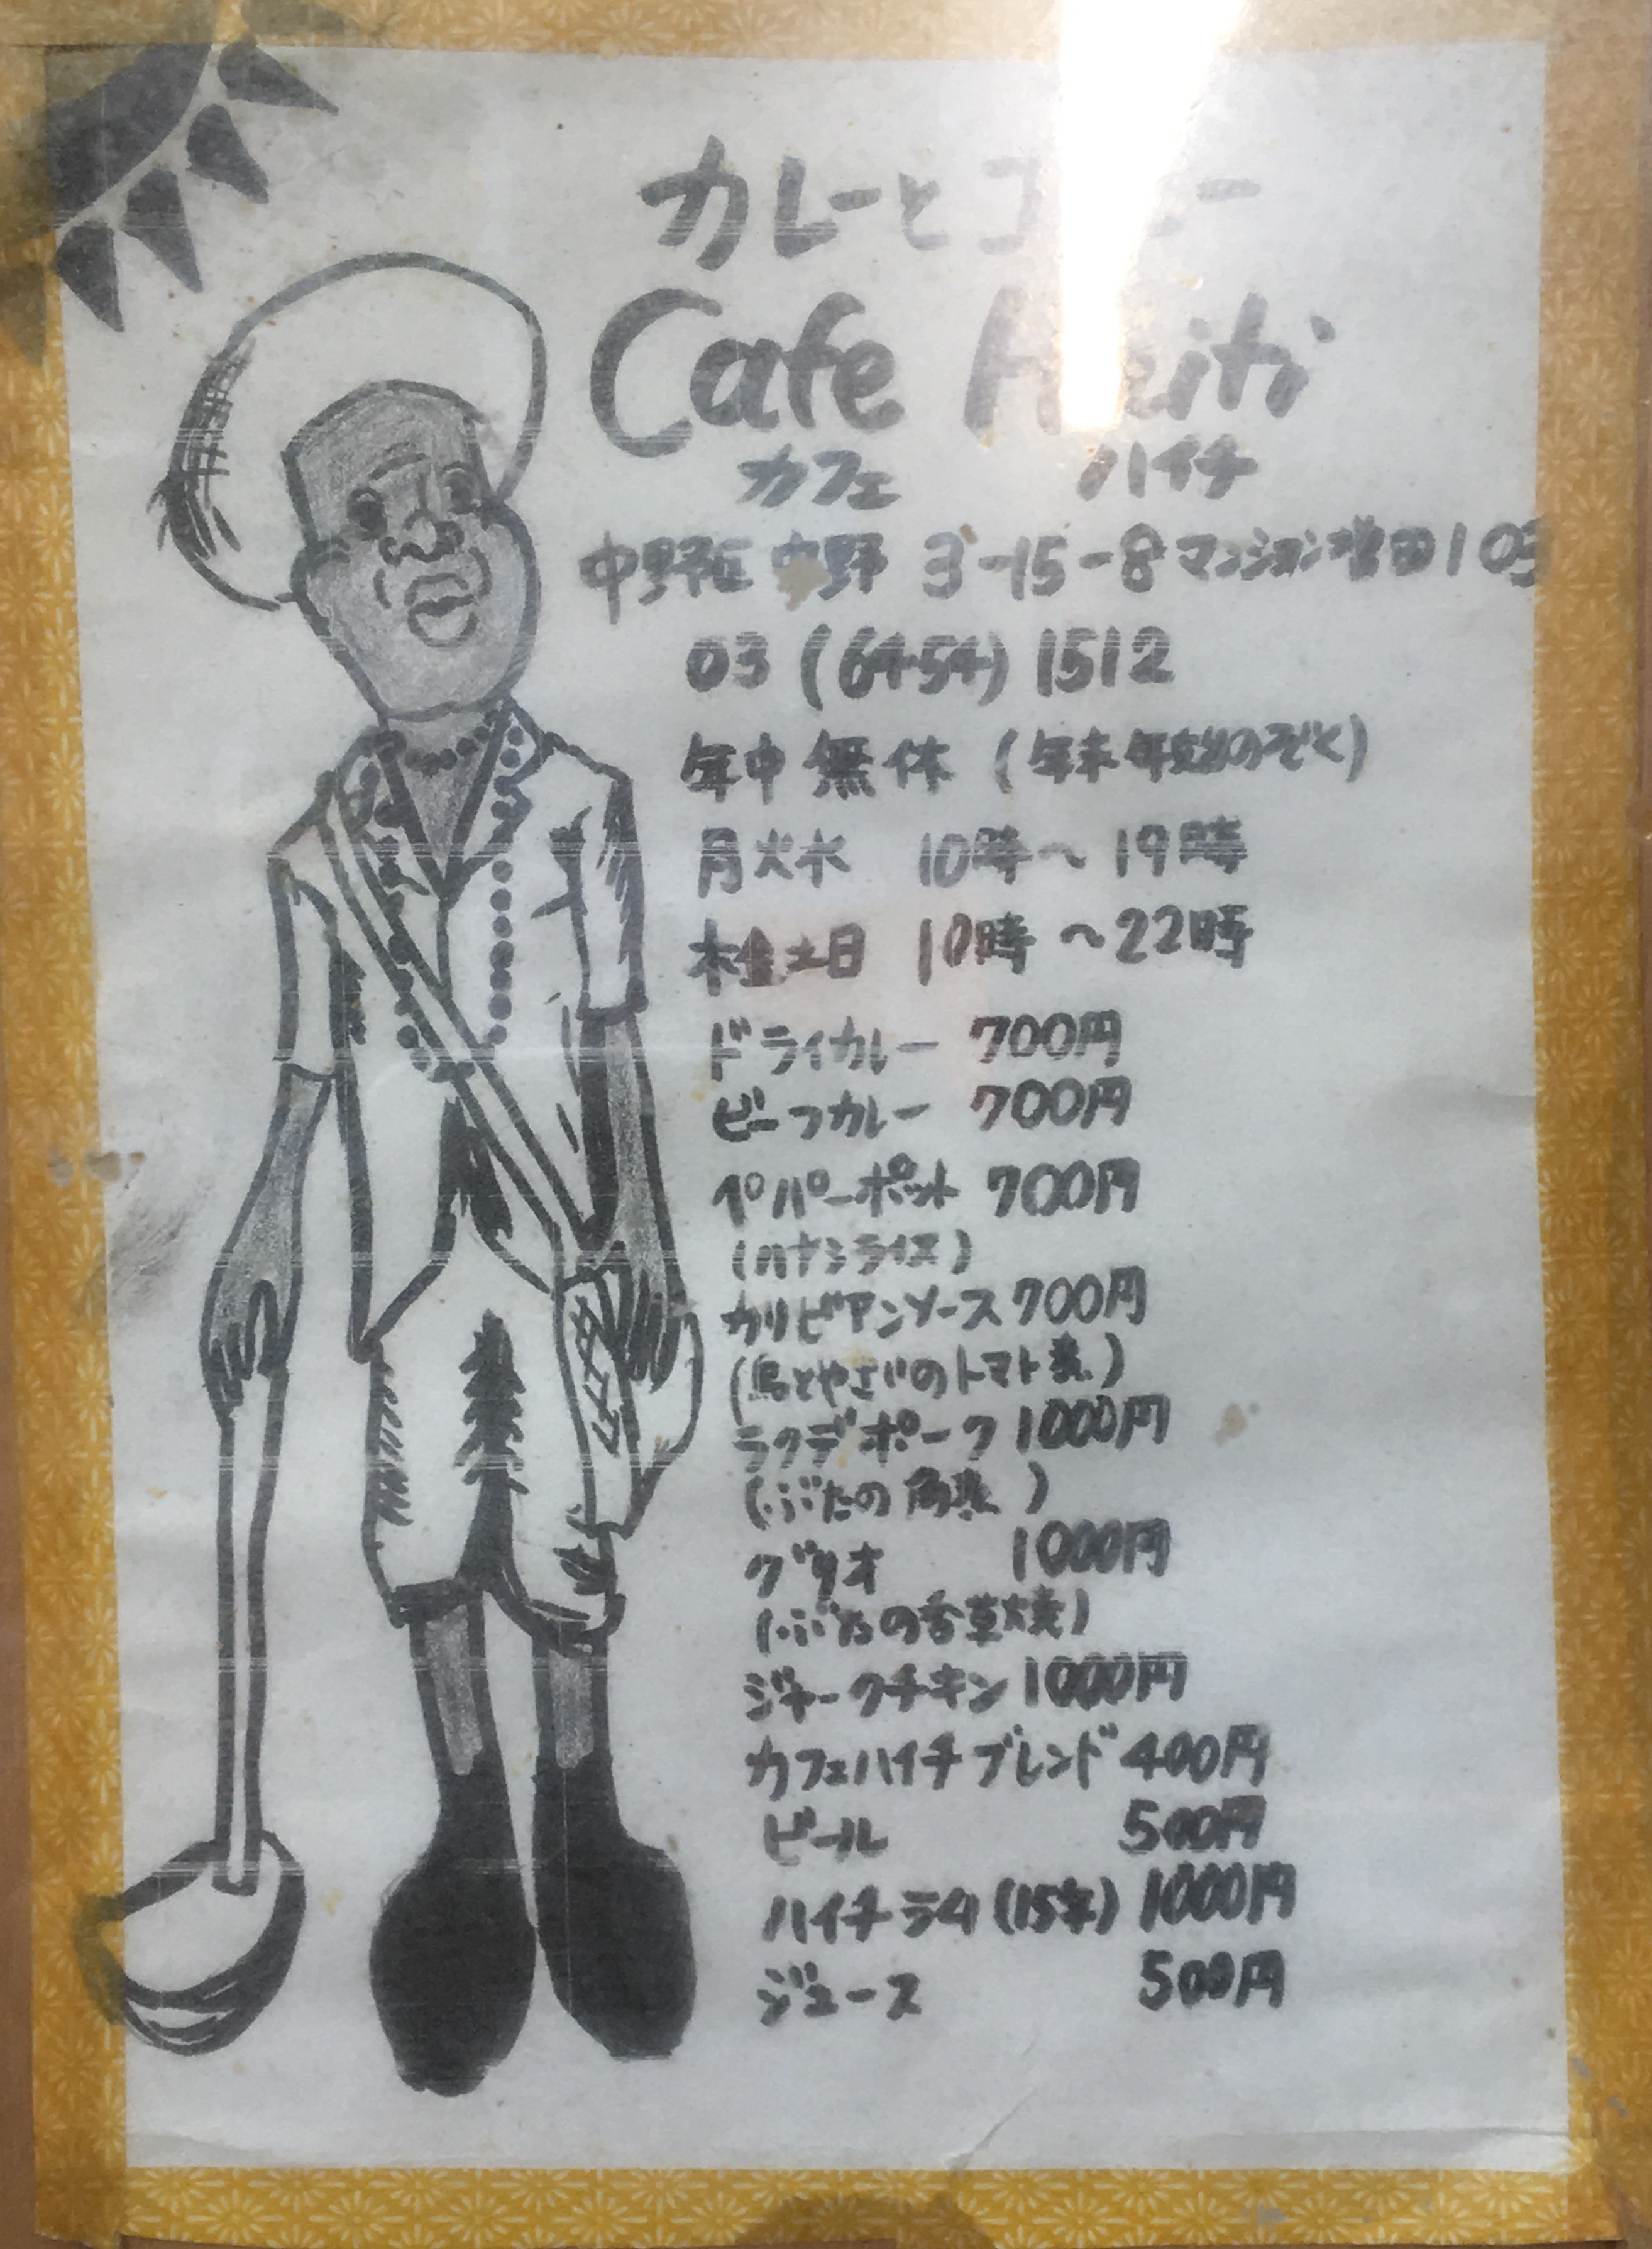 カレーとコー
Cafe Haiti
カフェ ハイチ
中野区 中野 3-15-8 マンション増田103
03 (6454) 1512
年中無休 (年末年始のぞく)
月火水 10時〜19時
木金土日 10時〜22時
ドライカレー 700円
ビーフカレー 700円
ペパーポット 700円
(ハヤシライス)
カリビアンソース 700円
(鳥とやさいのトマト煮)
ラクデポーク 1000円
(ぶたの角煮)
グリオ 1000円
(ぶたの香草焼)
ジャークチキン 1000円
カフェハイチブレンド 400円
ビール 500円
ハイチラム (15年) 1000円
ジュース 500円